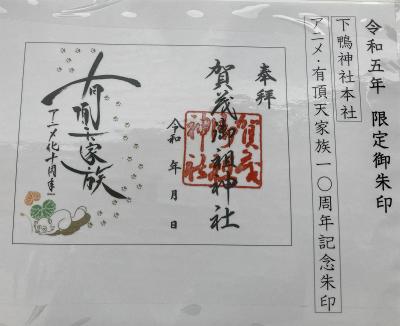 令和五年 限定御朱印
下鴨神社本社
アニメ・有頂天家族一〇周年記念朱印
奉拝
賀茂御祖神社
賀茂御祖神社
令和 年 月 日
有頂天家族
アニメ化十周年